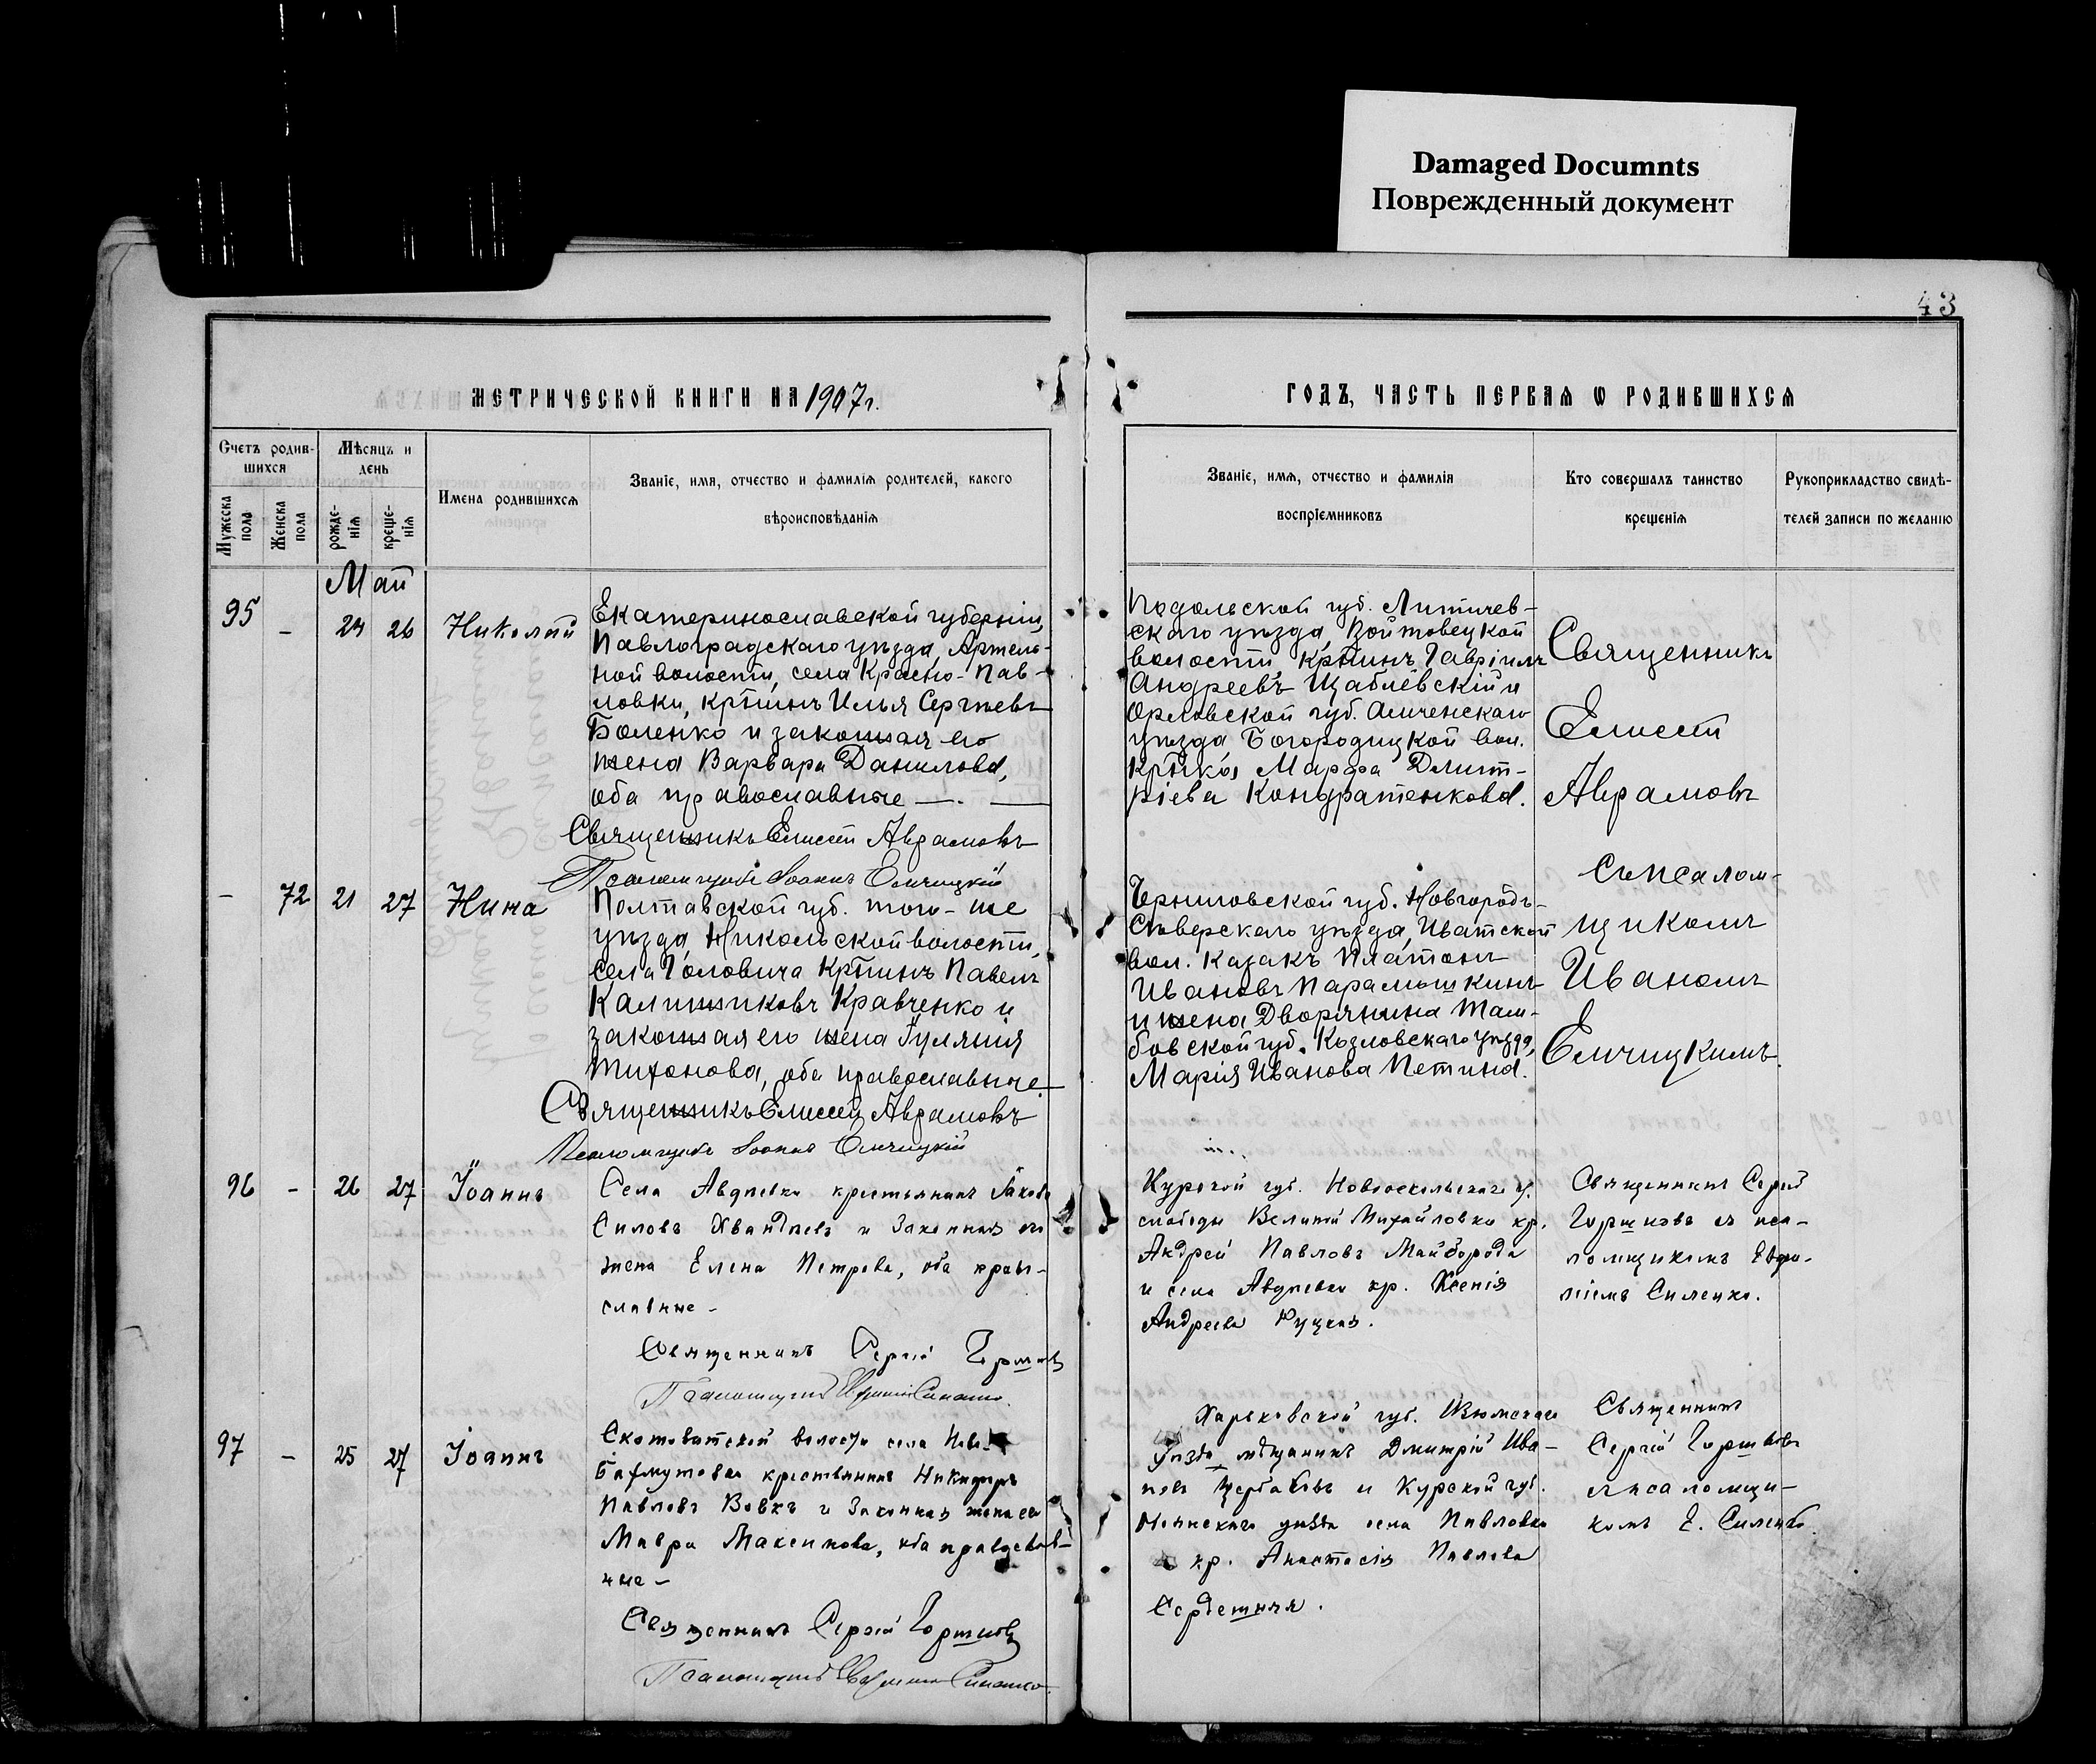 Damaged Documnts
Поврежденный документ
43
МЕТРИЧЕСКОЙ КНИГИ НА 1907 г.
Счетъ родив-
шихся
Мужеска пола
Женска пола
Мѣсяцъ и
день
рожде-
нія
креще-
нія
Имена родившихся
Званіе, имя, отчество и фамилія родителей, какого
вѣроисповѣданія
Май
95 - 24 26 Николай
Екатеринославской губерніи,
Павлоградскаго уѣзда, Артель-
ной волости, села Красно-Пав-
ловки, кр̃тинъ Илья Сергѣевъ
Боленко и законная его
жена Варвара Данилова,
оба православные —. —
Священникъ Елисей Аврамовъ
Псаломщикъ Іоаннъ Елчицкій
- 72 21 27 Нина
Полтавской губ. того-же
уѣзда, Никольской волости,
села Головича кр̃тинъ Павелъ
Калинниковъ Кравченко и
законная его жена Іуліанія
Тихонова, оба православные.
Священникъ Елисей Аврамовъ
Псаломщикъ Іоаннъ Елчицкій
96 - 26 27 Іоаннъ
Села Авдѣевки крестьянинъ Іаковъ
Силовъ и Законная его
жена Елена Петрова, оба право-
славные -
Священникъ Сергій Горшковъ
Псаломщикъ
97 - 25 27 Іоаннъ
Скотоватской волости села Ново-
Бахмутовки крестьянинъ Никифоръ
Павловъ Вовкъ и Законная жена его
Мавра Максимова, оба православ-
ные -
Священникъ Сергій Горшковъ
Псаломщикъ
ГОДЪ, ЧАСТЬ ПЕРВАЯ Ѡ РОДИВШИХСЯ
Званіе, имя, отчество и фамилія
воспріемниковъ
Кто совершалъ таинство
крещенія
Рукоприкладство свидѣ-
телей записи по желанію
Подольской губ. Литичев-
скаго уѣзда, Войтовецкой
волости кр̃тинъ Гавріилъ
Андреевъ Щаблевскій и
Орловской губ. Мценскаго
уѣзда Богородицкой вол.
кр̃тка Марфа Дмит-
ріева Кондратенкова.
Священникъ
Елисей
Аврамовъ
Съ псалом-
щикомъ
Иваномъ
Елчицкимъ
Черниговской губ. Новгородъ-
Сѣверскаго уѣзда, Иватской
вол. казакъ Платонъ
Ивановъ Парамошкинъ
и жена Дворянина Там-
бовской губ. Козловскаго уѣзда,
Марія Иванова Петина.
Курской губ. Новооскольскаго у.
слободы Великой Михайловки кр.
Андрей Павловъ Майборода
и села Авдѣевки кр. Ксенія
Андреева
Священникъ Сергій
Горшковъ съ пса-
ломщикомъ
Силенко.
Харьковской губ. Изюмскаго
уѣзда мѣщанинъ Дмитрій Ива-
новъ Щербаковъ и Курской губ.
уѣзда села Павловки
кр. Анастасія Павлова
Священникъ
Сергій Горшковъ
съ псаломщи-
комъ Е. Силенко.